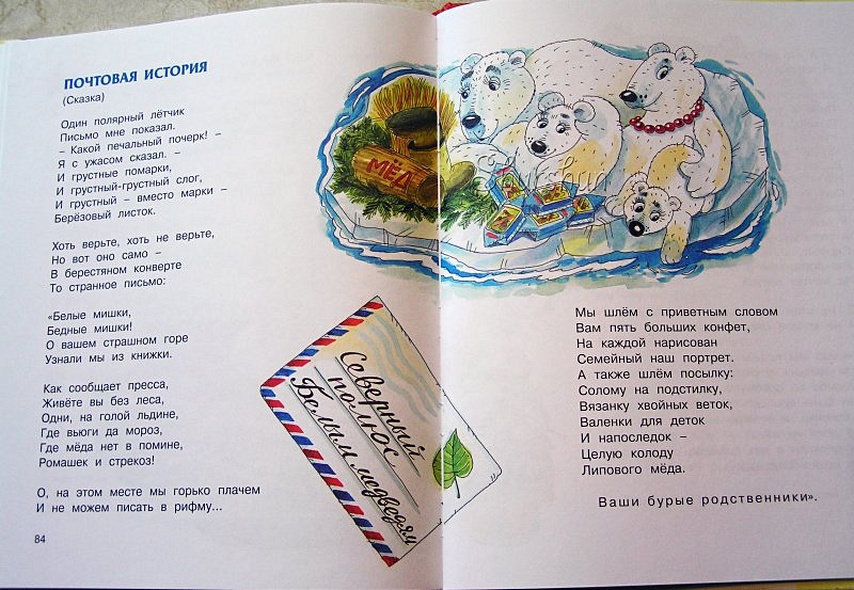 ПОЧТОВАЯ ИСТОРИЯ
(Сказка)
Один полярный лётчик
Письмо мне показал.
– Какой печальный почерк! –
Я с ужасом сказал. –
И грустные помарки,
И грустный-грустный слог,
И грустный – вместо марки –
Берёзовый листок.
Хоть верьте, хоть не верьте,
Но вот оно само –
В берестяном конверте
То странное письмо:
«Белые мишки,
Бедные мишки!
О вашем страшном горе
Узнали мы из книжки.
Как сообщает пресса,
Живёте вы без леса,
Одни, на голой льдине,
Где вьюги да мороз,
Где мёда нет в помине,
Ромашек и стрекоз!
О, на этом месте мы горько плачем
И не можем писать в рифму...
84
МЁД
Северный
полюс
Белым медведям
Мы шлём с приветным словом
Вам пять больших конфет,
На каждой нарисован
Семейный наш портрет.
А также шлём посылку:
Солому на подстилку,
Вязанку хвойных веток,
Валенки для деток
И напоследок –
Целую колоду
Липового мёда.
Ваши бурые родственники».